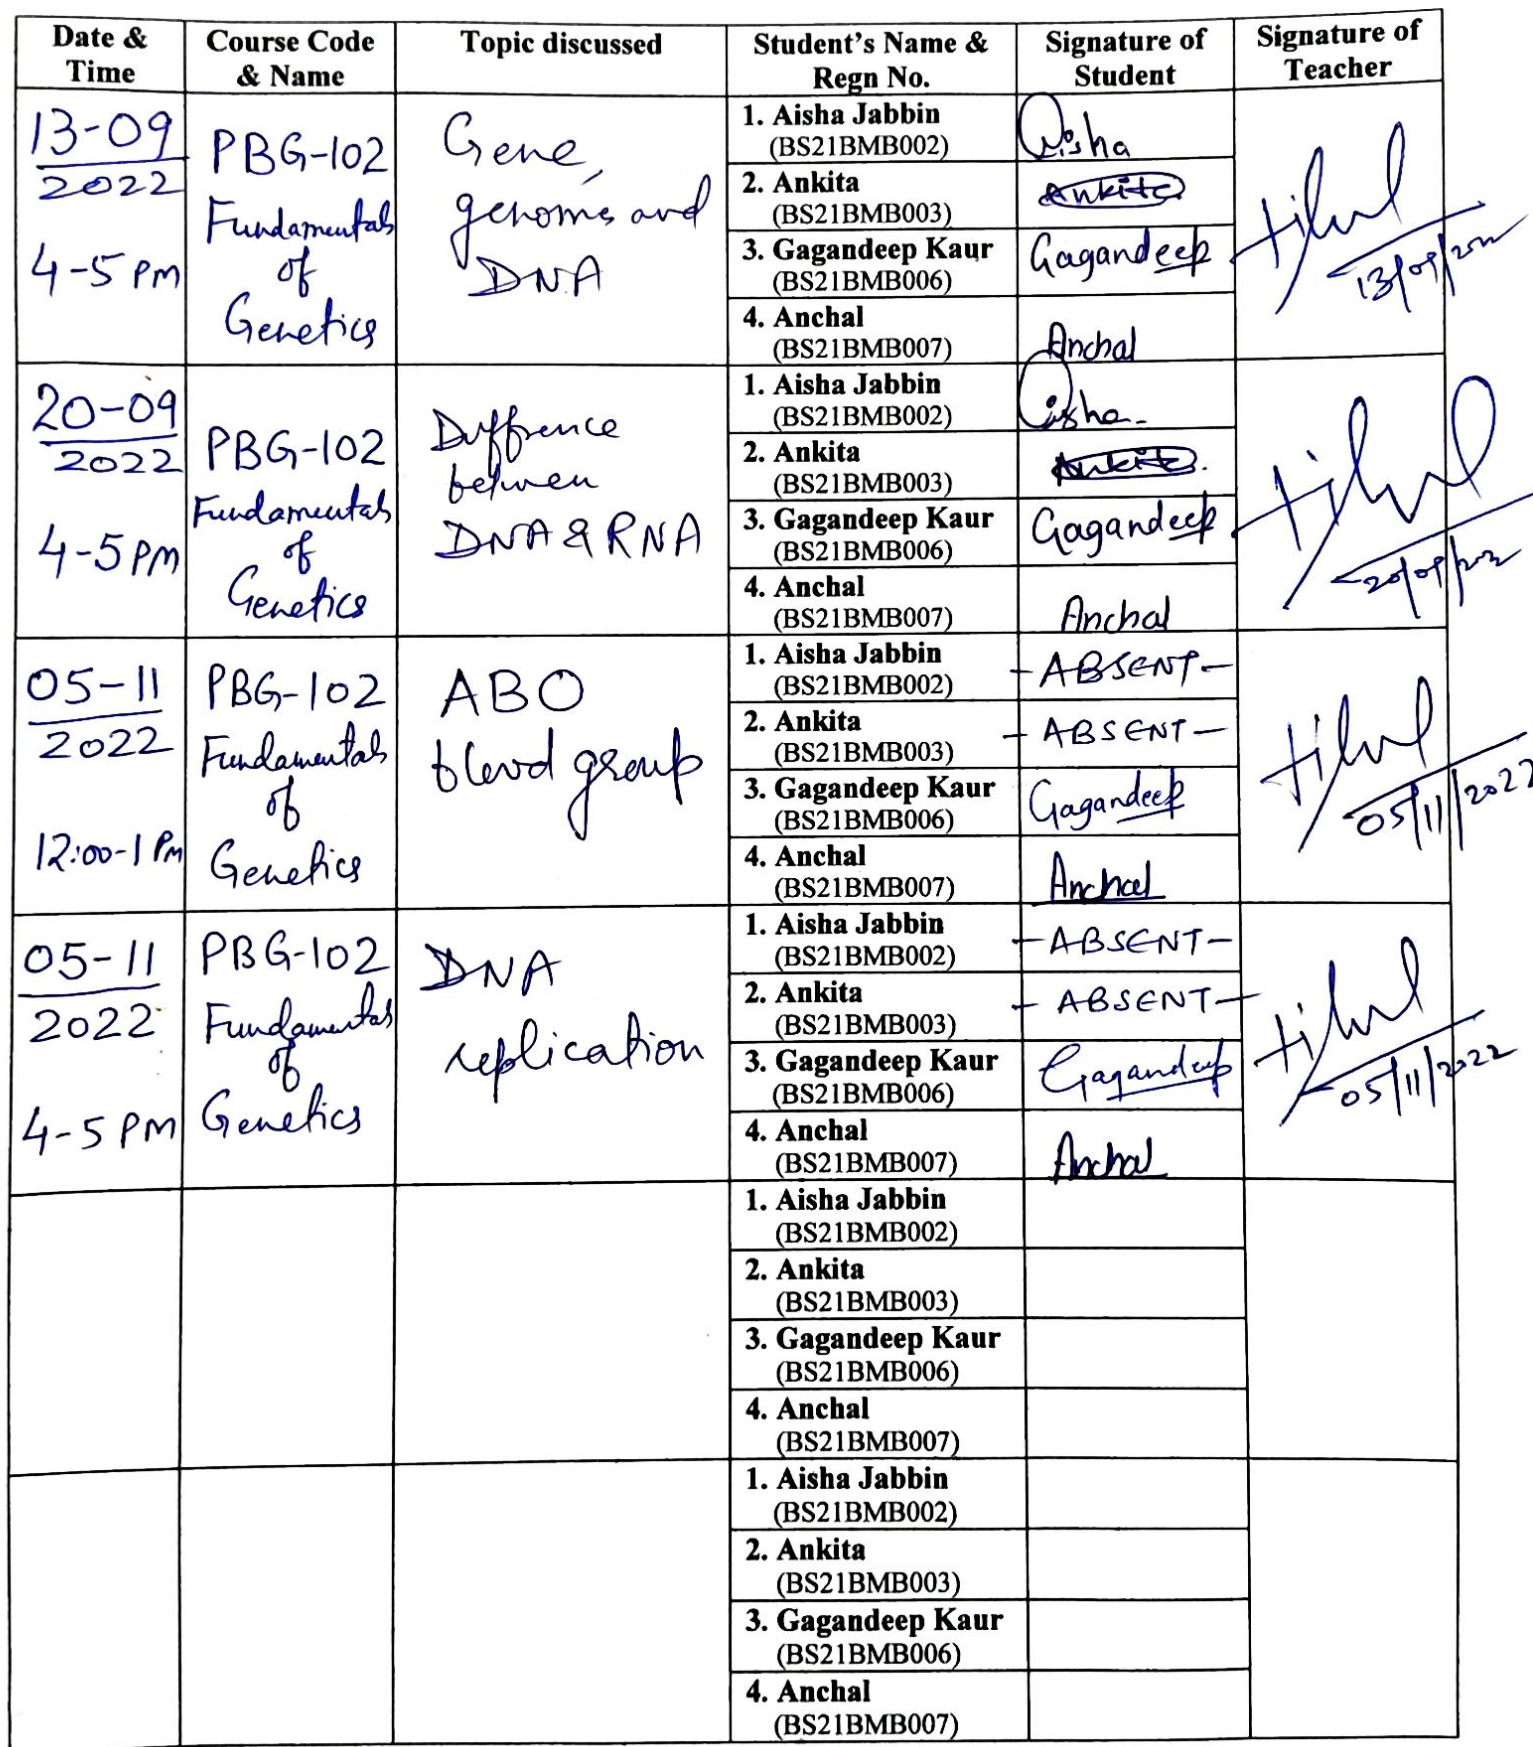 Date & Time
Course Code & Name
Topic discussed
Student's Name & Regn No.
Signature of Student
Signature of Teacher
13-09
2022
4-5 PM
PBG-102
Fundamentals
of
Genetics
Gene,
genome and
DNA
1. Aisha Jabbin
(BS21BMB002)
Aisha
2. Ankita
(BS21BMB003)
Ankita
3. Gagandeep Kaur
(BS21BMB006)
Gagandeep
4. Anchal
(BS21BMB007)
Anchal
20-09
2022
4-5 PM
PBG-102
Fundamentals
of
Genetics
Duffrence
between
DNA & RNA
1. Aisha Jabbin
(BS21BMB002)
Aisha
2. Ankita
(BS21BMB003)
Ankita
3. Gagandeep Kaur
(BS21BMB006)
Gagandeep
4. Anchal
(BS21BMB007)
Anchal
05-11
2022
12:00-1 PM
PBG-102
Fundamentals
of
Genetics
ABO
blood group
1. Aisha Jabbin
(BS21BMB002)
-ABSENT-
2. Ankita
(BS21BMB003)
-ABSENT-
3. Gagandeep Kaur
(BS21BMB006)
Gagandeep
4. Anchal
(BS21BMB007)
Anchal
05/11/2022
05-11
2022
4-5 PM
PBG-102
Fundamentals
of
Genetics
DNA
replication
1. Aisha Jabbin
(BS21BMB002)
-ABSENT-
2. Ankita
(BS21BMB003)
-ABSENT-
3. Gagandeep Kaur
(BS21BMB006)
Gagandeep
4. Anchal
(BS21BMB007)
Anchal
05/11/2022
1. Aisha Jabbin
(BS21BMB002)
2. Ankita
(BS21BMB003)
3. Gagandeep Kaur
(BS21BMB006)
4. Anchal
(BS21BMB007)
1. Aisha Jabbin
(BS21BMB002)
2. Ankita
(BS21BMB003)
3. Gagandeep Kaur
(BS21BMB006)
4. Anchal
(BS21BMB007)